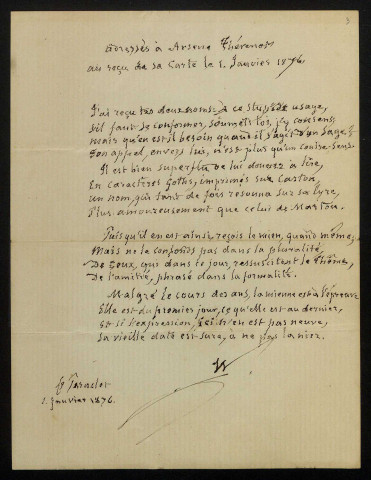 adressés à Arsene Thévenot
au reçu de sa Carte le 1. Janvier 1876.
J'ai reçu tes deux noms; à ce stupide usage,
S'il faut se conformer, soumets toi, j'y consens;
mais qu'en est il besoin quand il s'agit d'un Sage?
Son appel, envers lui, n'est plus qu'un contre-sens.
Il est bien superflu de lui donner à lire,
En caractères Goths, imprimés sur Carton,
un nom, qui tant de fois résonna sur sa lyre,
Plus amoureusement que celui de Marton.
Puisqu'il en est ainsi, reçois le mien, quand même,
Mais ne le confonds pas dans la pluralité,
De ceux, qui dans ce jour, ressuscitent le
De l'amitié, phrasé dans la formalité.
Malgré le cours des ans, la mienne est à l'épreuve
Elle est du premier jour, ce qu'elle est au dernier,
Et si s'expression, ici n'en est pas neuve,
Sa vieille date est sure, à ne pas la nier.
1. Janvier 1876.